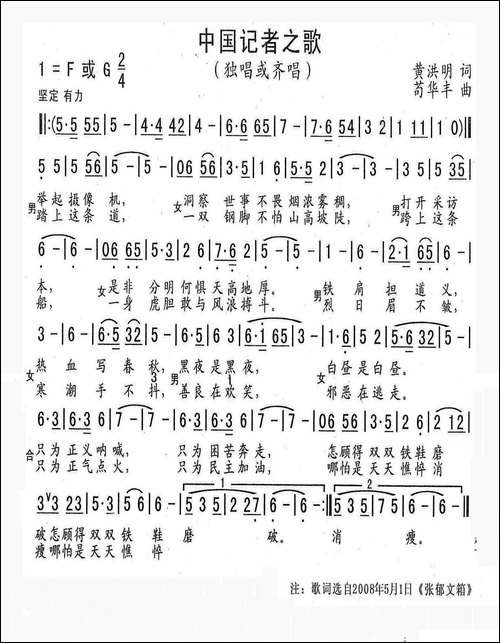 中国记者之歌
(独唱或齐唱)
1=F 或 G 2/4
坚定 有力
黄洪明 词
苟华丰 曲
‖:(5·5 55 | 5 - | 4·4 42 | 4 - | 6·6 65 | 7 - | 7·6 54 | 3 2 | 1 11 | 1 0)|
5 5 | 5 56 | 5 - | 5 - | 06 56 | 5·4 32 | 1 16 | 5·5 2 | 3 - | 3 - | 5 5 | 3 35 |
男 举起 摄像 机, 女 洞察 世事 不畏 烟浓雾稠, 男 打开 采访
踏上 这条 道, 一双 钢脚 不怕 山高坡陡, 跨上 这条
6 - | 6 - | 06 65 | 5·3 | 2 6 | 7·6 2 | 5 - | 5 - | 1 - | 6 - | 2·1 65 | 6 - |
本, 女 是非 分明 何惧 天高地厚。 男 铁 肩 担 道 义,
船, 一身 虎胆 敢与 风浪搏斗。 烈 日 眉 不 皱,
3 - | 6 - | 6·5 32 | 5 - | 3·3 23 | 6·1 65 | 3 - | 3 - | 1·6 | 5 2 | 5·6 65 | 6 - |
女 热 血 写 春 秋, 男 黑夜 是 黑夜, 女 白昼 是 白昼。
寒 潮 手 不 抖, 善良 在 欢笑, 邪恶 在 逃走。
6·3 | 6·3 6 | 7 - | 7 - | 6·3 | 6·3 6 | 7 - | 7 - | 3 6 | 5 6 | 4·3 23 | 6 - | 2 12 |
合 只为 正义 呐喊, 只为 困苦 奔走, 怎顾得 双双 铁鞋 磨
只为 正气 点火, 只为 民主 加油, 哪怕是 天天 憔悴 消
3 3 23 | 5 - | 3 - | 5 6 | 6 - | 5 35 | 2 27 | 6 - | 6 - :‖ 5 35 | 7 5 | 6 - | 6 - ‖
破怎顾得 双双 铁 鞋 磨 破。 消 瘦。
瘦哪怕是 天天 憔 悴
注:歌词选自2008年5月1日《张郁文箱》